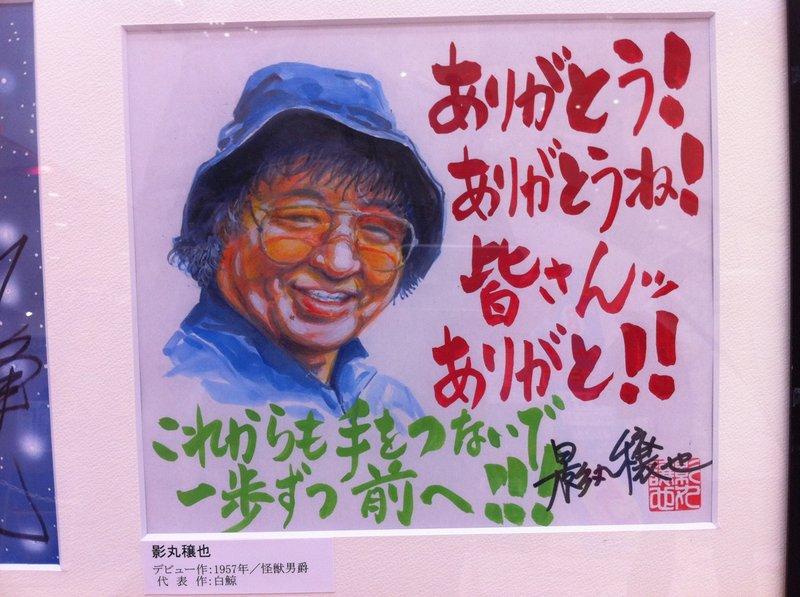 ありがとう!
ありがとうね!
皆さんッ
ありがと!!
これからも手をつないで
一歩ずつ前へ!!!
影丸穣也
影丸穣也
デビュー作:1957年/怪獣男爵
代表作:白鯨